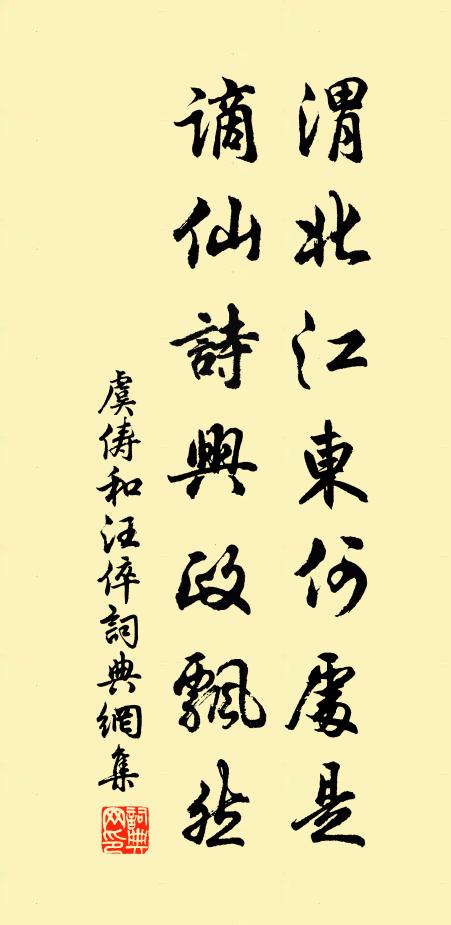 渭北江東何處是
謫仙詩興政飄然
虞儔和汪倅詞典網集
詞典网印